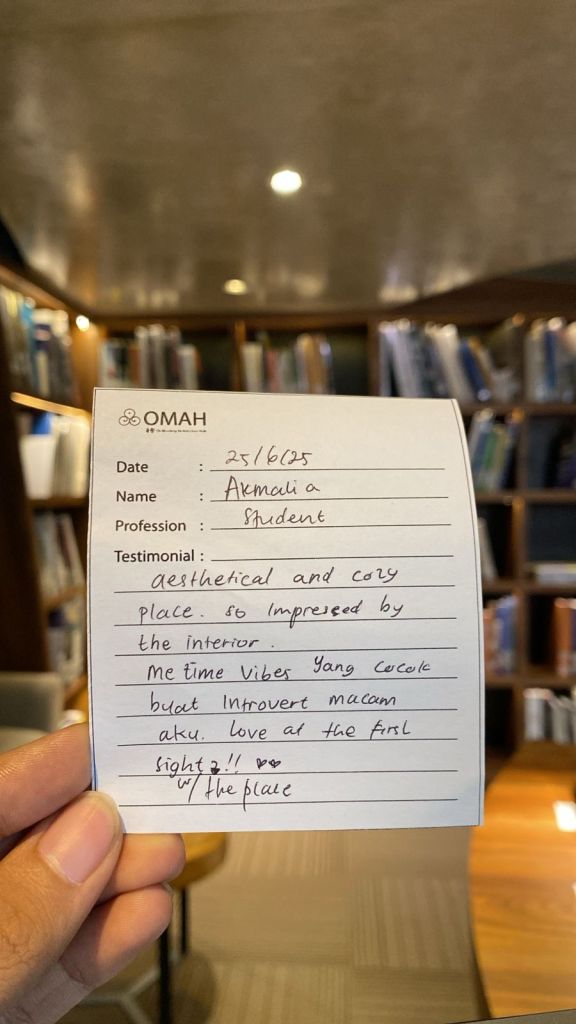 OMAH
Date : 25/6/25
Name : Akmalia
Profession : Student
Testimonial :
aesthetical and cozy
place. so impressed by
the interior.
me time vibes yang cocok
buat introvert macam
aku. love at the first
sight !! ♥♥
w/ the place